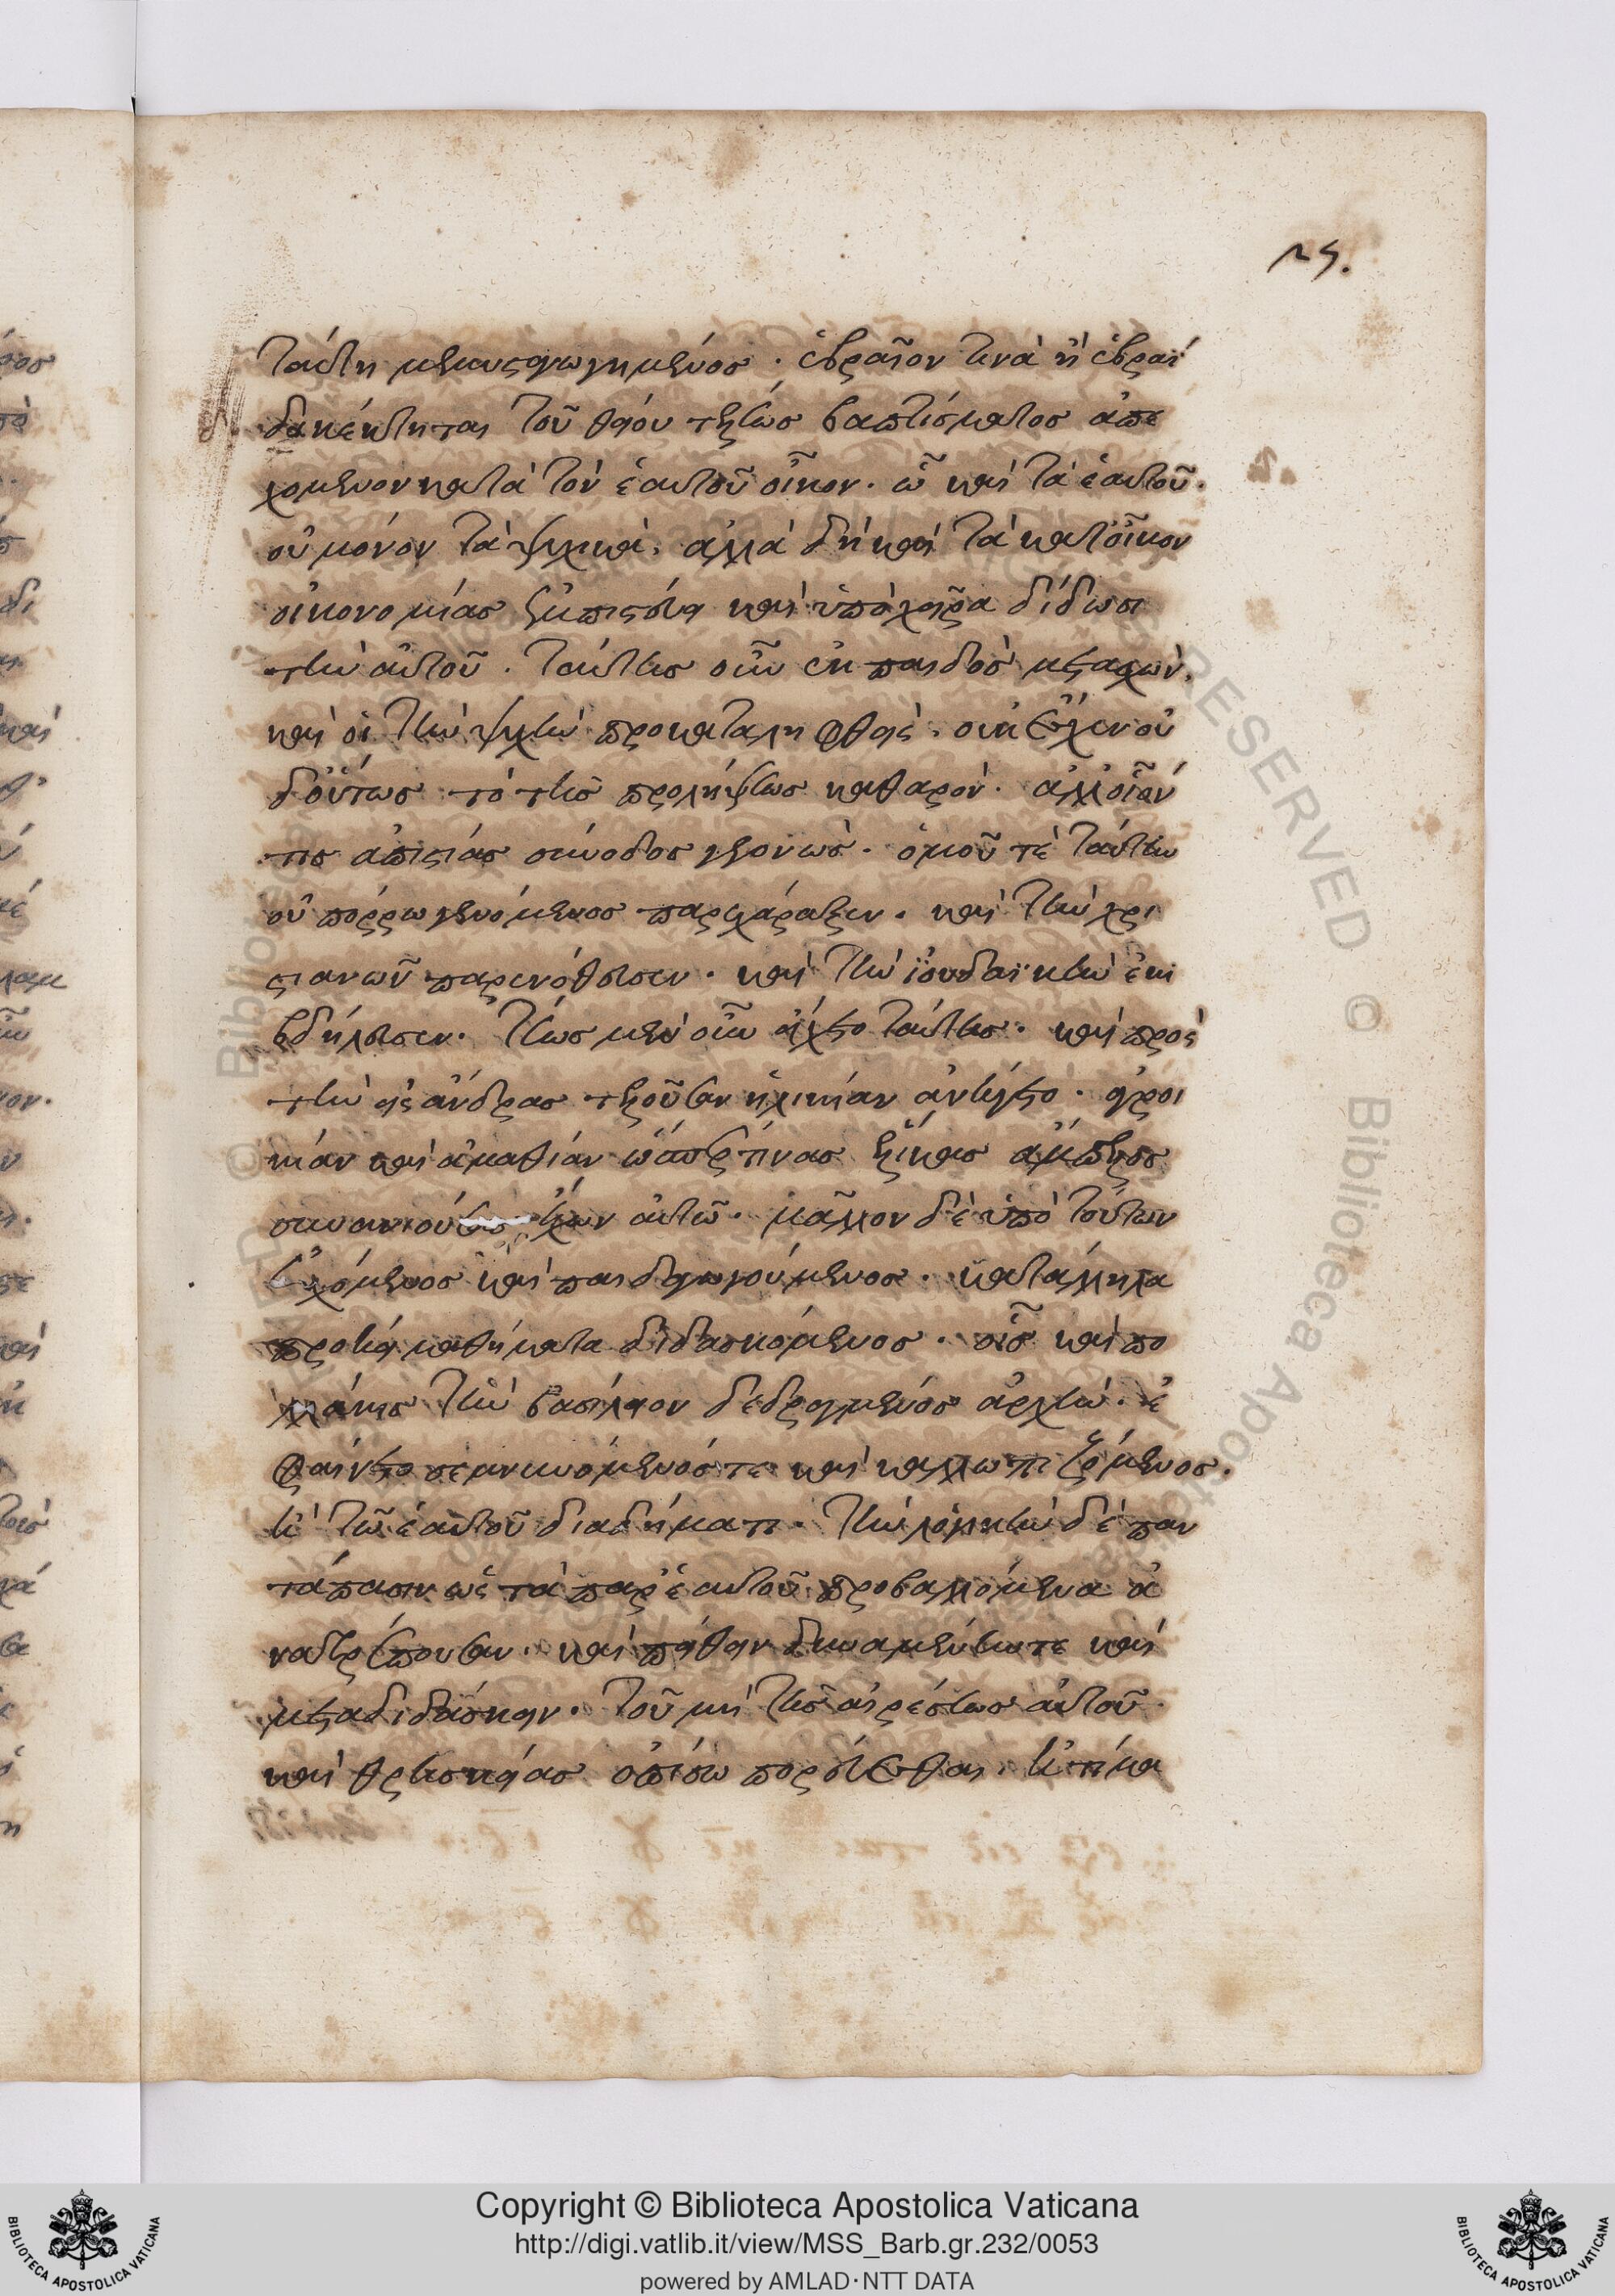 25.
ταύτη μεμυσταγωγημένος. ἑβραῖον τινὰ ἢ ἑβραί
δα κέκτηται τοῦ θείου τέως βαπτίσματος ἀπε
χόμενον κατὰ τὸν ἑαυτοῦ οἶκον. ὧ καὶ τὰ ἑαυτοῦ.
οὐ μόνον τὰ ψυχικὰ, ἀλλὰ δὴ καὶ τὰ κατοῖκον
οἰκονομίας ἐμπιστεύει καὶ ὑπὸ χεῖρα δίδωσι
τὴν αὐτοῦ. ταύτης οὖν ἐκ παιδὸς μετασχὼν,
καὶ οἱ τὴν ψυχὴν προκαταληφθεὶς. οὐκ ἔσχεν οὐ
δοὕτως τὸ τῆς προλήψεως καθαρόν. ἀλλοἷόν
τις ἀπιστίας σύνοδος γεγονὼς. ὁμοῦ τὲ ταύτην
οὐ πόρρω γενόμενος παρεχάραξεν. καὶ τὴν χρι
στιανῶν παρενόθευσεν. καὶ τὴν ἰουδαϊκὴν ἐκι
βδήλευσεν. τέως μὲν οὖν εἴχετο ταύτης. καὶ πρὸς
τὴν εἰς ἄνδρας τελοῦσαν ἡλικίαν ἀνήγετο. ἀγροι
κίαν καὶ ἀμαθίαν ὥσπερ τινας
συνανιούσας ἔχων αὐτῶ. μᾶλλον δὲ ὑπὸ τούτων
ἀγόμενος καὶ παιδαγωγούμενος. κατάλληλα
καθήκατα διδασκόμενος. οἷς καὶ πο
λλάκις τὴν βασίλειον δεδραγμένος ἀρχὴν. ἐ
φαίνετο σεμνυνόμενός τε καὶ καλλωπιζόμενος.
ἐν τῶ ἑαυτοῦ διαδήματι. τὴν λογικὴν δὲ παν
τάπασιν ὡς τὰ παρ' ἑαυτοῦ προβαλλόμενα ἀ
νατρέπουσαν. καὶ πείθειν δυναμένην τε καὶ
μεταδιδάσκειν. τοῦ μὴ τῆς αἱρέσεως αὐτοῦ
καὶ θρησκείας ὀπίσω πορεύεσθαι.
Copyright © Biblioteca Apostolica Vaticana
http://digi.vatlib.it/view/MSS_Barb.gr.232/0053
powered by AMLAD·NTT DATA
BIBLIOTECA APOSTOLICA VATICANA
BIBLIOTECA APOSTOLICA VATICANA